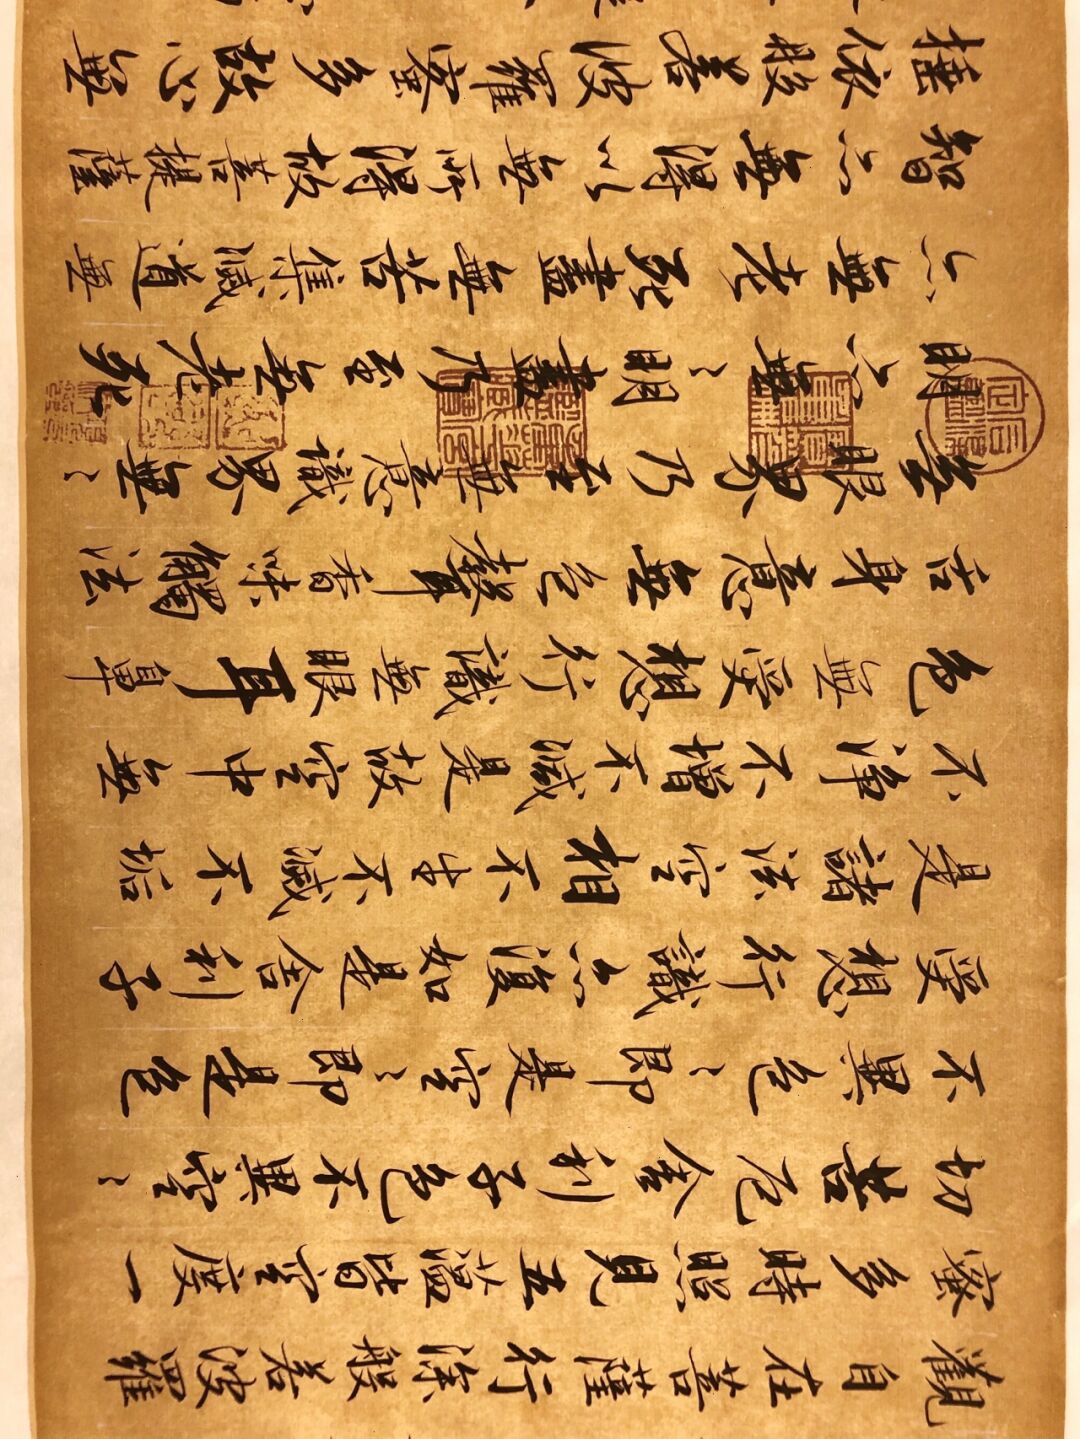 觀自在菩薩行深般若波羅
蜜多時照見五蘊皆空度一
切苦厄舍利子色不異空〻
不異色〻即是空〻即是色
受想行識亦復如是舍利子
是諸法空相不生不滅不垢
不淨不增不減是故空中無
色無受想行識無眼耳鼻
舌身意無色聲香味觸法
無眼界乃至無意識界無〻
明亦無〻明盡乃至無老死
亦無老死盡無苦集滅道無
智亦無得以無所得故菩提薩
埵依般若波羅蜜多故心無